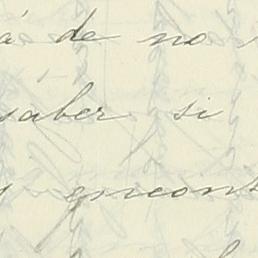 á de no
saber si
encont